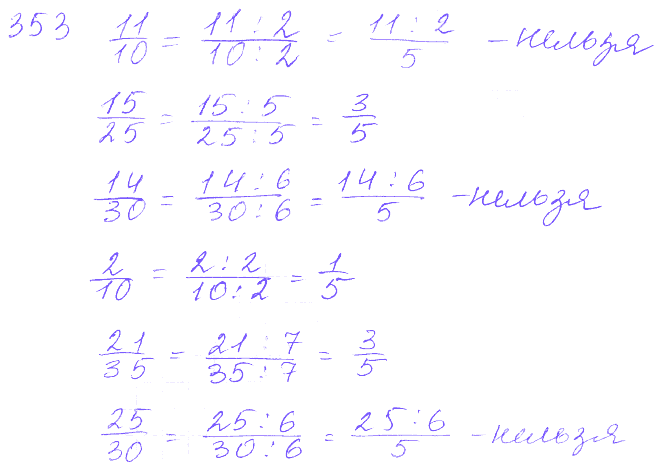 353 11/10 = 11:2/10:2 = 11:2/5 – нельзя
15/25 = 15:5/25:5 = 3/5
14/30 = 14:6/30:6 = 14:6/5 – нельзя
2/10 = 2:2/10:2 = 1/5
21/35 = 21:7/35:7 = 3/5
25/30 = 25:6/30:6 = 25:6/5 – нельзя